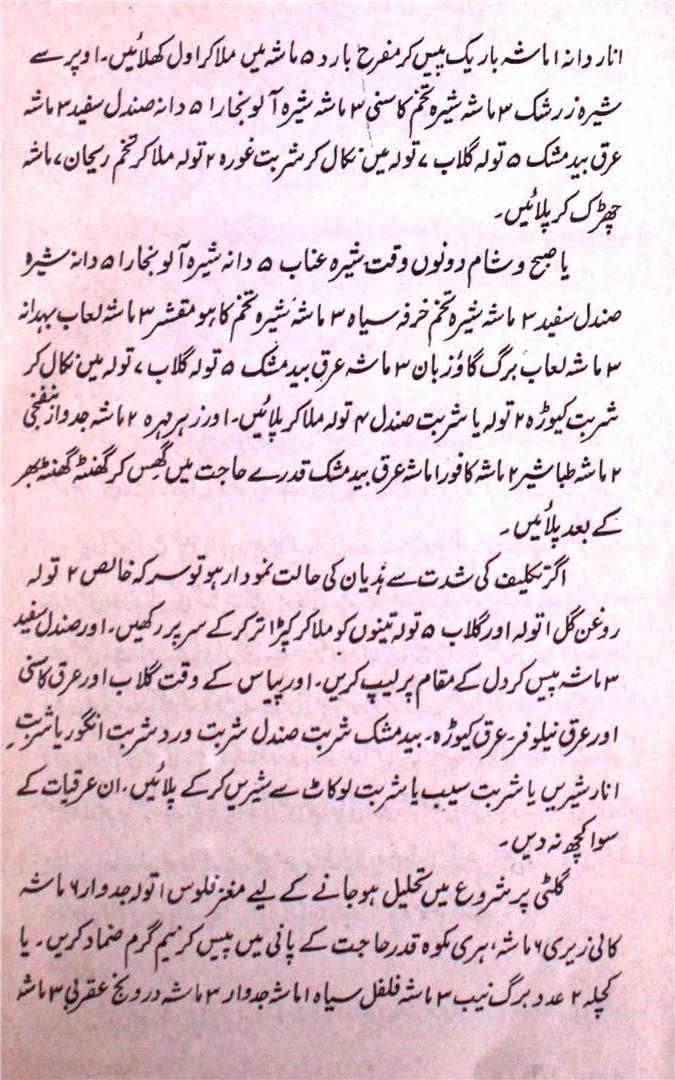 انار دانہ ۱ ماشہ باریک پیس کر مفرح بارد ۵ ماشہ میں ملا کر اول کھلائیں۔ اوپر سے
شیرہ زرشک ۳ ماشہ شیرہ تخم کاسنی ۳ ماشہ شیرہ آلو بخارا ۵ دانہ صندل سفید ۳ ماشہ
عرق بید مشک ۵ تولہ گلاب ۷ تولہ میں نکال کر شربت غورہ ۲ تولہ ملا کر تخم ریحان ۷ ماشہ
چھڑک کر پلائیں۔
یا صبح و شام دونوں وقت شیرہ عناب ۵ دانہ شیرہ آلو بخارا ۵ دانہ شیرہ
صندل سفید ۳ ماشہ شیرہ تخم خرفہ سیاہ ۳ ماشہ شیرہ تخم کاہو مقشر ۳ ماشہ لعاب بہدانہ
۳ ماشہ لعاب برگ گاؤزبان ۳ ماشہ عرق بید مشک ۵ تولہ گلاب ۷ تولہ میں نکال کر
شربت کیوڑہ ۲ تولہ یا شربت صندل ۴ تولہ ملا کر پلائیں۔ اور زہر مہرہ ۲ ماشہ جدوار بنفجی
۲ ماشہ طباشیر ۲ ماشہ کافور ۱ ماشہ عرق بید مشک قدرے حاجت میں گھس کر گھنٹہ گھنٹہ بھر
کے بعد پلائیں۔
اگر تکلیف کی شدت سے ہذیان کی حالت نمودار ہو تو سرکہ خالص ۲ تولہ
روغن گل ۱ تولہ اور گلاب ۵ تولہ تینوں کو ملا کر کپڑا تر کر کے سر پر رکھیں۔ اور صندل سفید
۳ ماشہ پیس کر دل کے مقام پر لیپ کریں۔ اور پیاس کے وقت گلاب اور عرق کاسنی
اور عرق نیلوفر۔ عرق کیوڑہ۔ بید مشک شربت صندل شربت ورد شربت انگور یا شربت
انار شیریں یا شربت سیب یا شربت لوکاٹ سے شیریں کر کے پلائیں۔ ان عرقیات کے
سوا کچھ نہ دیں۔
گلٹی پر شروع میں تحلیل ہو جانے کے لیے مغز فلوس ۱ تولہ جدوار ۶ ماشہ
کالی زیری ۶ ماشہ، ہری مکوہ قدر حاجت کے پانی میں پیس کر نیم گرم ضماد کریں۔ یا
کچلہ ۲ عدد برگ نیب ۳ ماشہ فلفل سیاہ ۱ ماشہ جدوار ۳ ماشہ درونج عقربی ۳ ماشہ